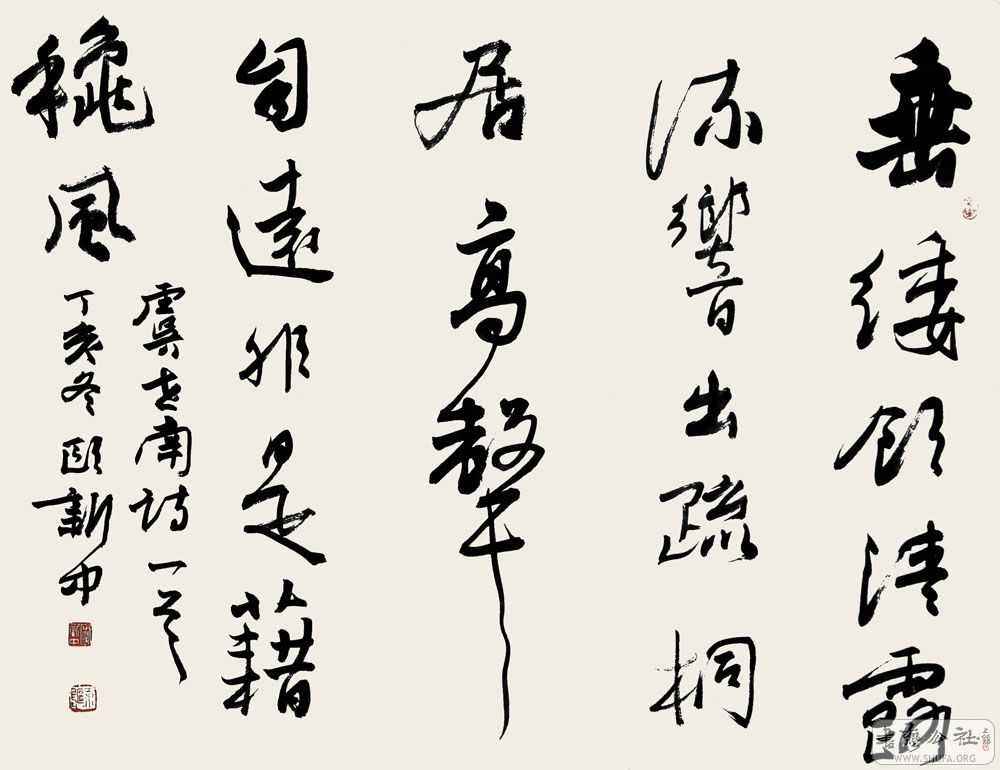 垂緌飲清露
流響出疏桐
居高聲
自遠非是藉
穐風
虞世南詩一首
丁亥冬歐新中
書藝公社
WWW.SHUFA.ORG